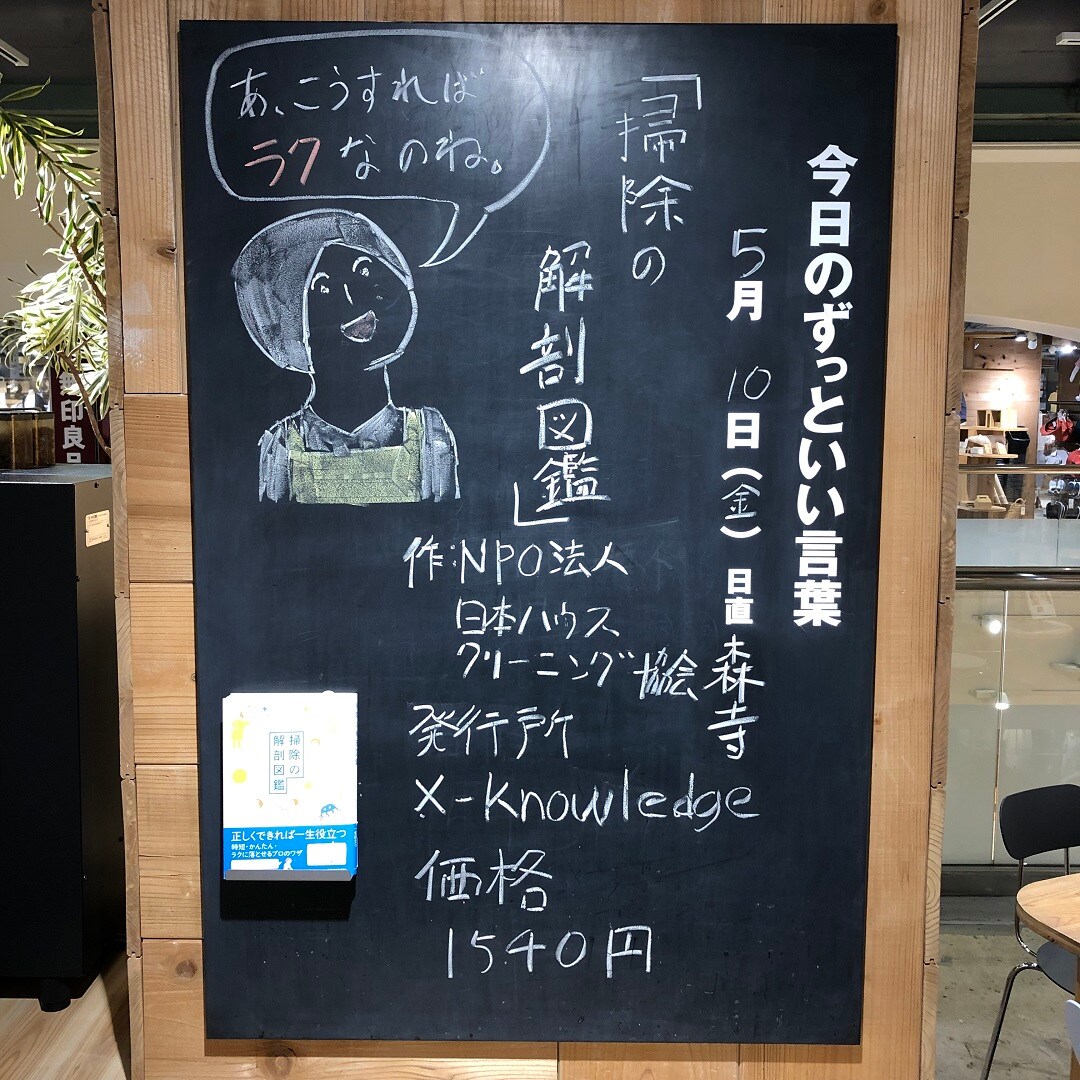 今日のずっといい言葉
5月10日(金) 日直 森寺
「掃除の
解剖図鑑」
あ、こうすれば
ラクなのね。
作:NPO法人
日本ハウス
クリーニング協会
発行所
X-Knowledge
価格
1540円
掃除の
解剖図鑑
正しくできれば一生役立つ
時短・かんたん・
ラクに落とせるプロのワザ
無印良品